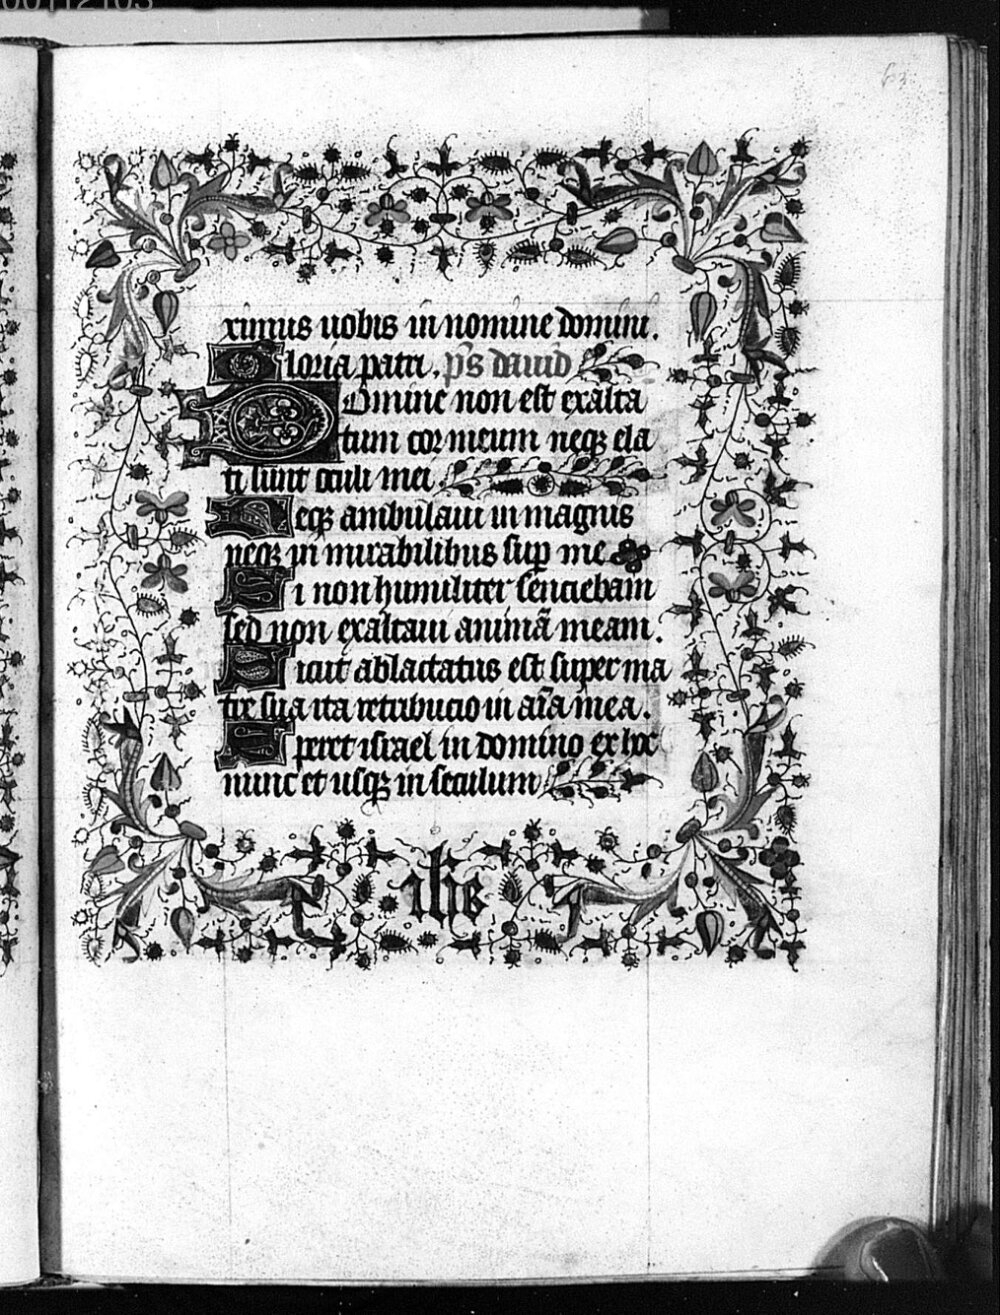 00112103
63
ximus uobis in nomine domini.
Gloria patri. p̄s dauid
Domine non est exalta
tum cor meum neqꝫ ela
ti sunt oculi mei
Neqꝫ ambulaui in magnis
neqꝫ in mirabilibus suꝑ me
Si non humiliter senciebam
sed non exaltaui animā meam.
Sicut ablactatus est super ma
tre sua ita retribucio in aīa mea.
Speret israel in domino ex hoc
nunc et usqꝫ in seculum